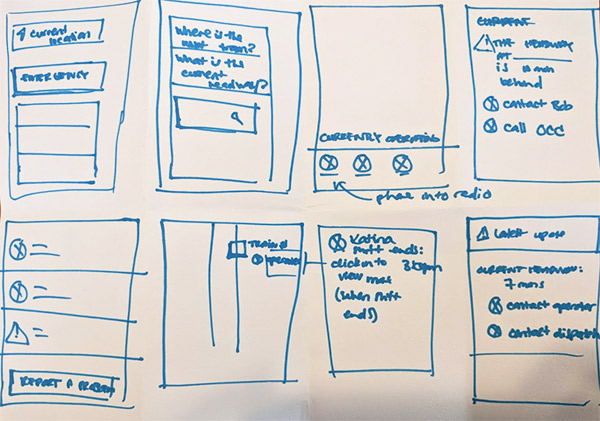 current
location
EMERGENCY
Where is the
next train?
What is the
current
headway?
CURRENTLY OPERATING
phone into radio
CURRENT
THE HEADWAY
AT
is 10 min
behind
contact Bob
call OCC
REPORT A PROBLEM
TRAIN #
OPERATOR
Katina
shift ends:
3:15pm
click on to
view
(when shift
ends)
Latest update
CURRENT HEADWAY:
7 mins
contact operator
contact dispatch